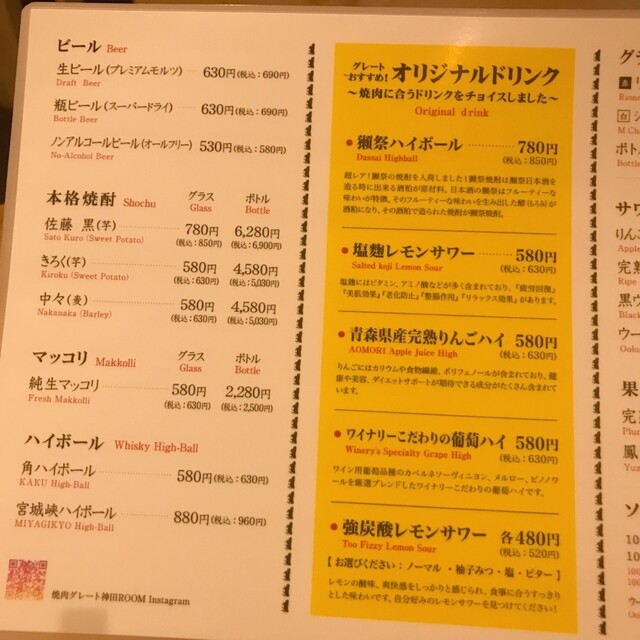 ビール Beer
生ビール(プレミアムモルツ) 630円(税込:690円)
Draft Beer
瓶ビール(スーパードライ) 630円(税込:690円)
Bottle Beer
ノンアルコールビール(オールフリー) 530円(税込:580円)
No-Alcohol Beer
本格焼酎 Shochu グラス Glass ボトル Bottle
佐藤 黒(芋) 780円 6,280円
Sato Kuro (Sweet Potato) (税込:850円) (税込:6,900円)
きろく(芋) 580円 4,580円
Kiroku (Sweet Potato) (税込:630円) (税込:5,030円)
中々(麦) 580円 4,580円
Nakanaka (Barley) (税込:630円) (税込:5,030円)
マッコリ Makkolli グラス Glass ボトル Bottle
純生マッコリ 580円 2,280円
Fresh Makkolli (税込:630円) (税込:2,500円)
ハイボール Whisky High-Ball
角ハイボール 580円(税込:630円)
KAKU High-Ball
宮城峡ハイボール 880円(税込:960円)
MIYAGIKYO High-Ball
焼肉グレート神田ROOM Instagram
グレートおすすめ! オリジナルドリンク
〜焼肉に合うドリンクをチョイスしました〜
Original drink
獺祭ハイボール 780円
Dassai Highball (税込:850円)
超レア!獺祭の焼酎を入荷しました!獺祭焼酎は獺祭日本酒を
造る時に出来る酒粕が原材料。日本酒の獺祭はフルーティーな
味わいが特徴。そのフルーティーな味わいを生み出した醪(もろみ)が
酒粕になり、その酒粕で造られた焼酎が獺祭焼酎。
塩麹レモンサワー 580円
Salted koji Lemon Sour (税込:630円)
塩麹にはビタミン、アミノ酸などが多く含まれており、『疲労回復』
『美肌効果』『老化防止』『整腸作用』『リラックス効果』があります。
青森県産完熟りんごハイ 580円
AOMORI Apple Juice High (税込:630円)
りんごにはカリウムや食物繊維、ポリフェノールが含まれており、健
康や美容、ダイエットサポートが期待できる成分がたくさん含まれて
います。
ワイナリーこだわりの葡萄ハイ 580円
Winery's Specialty Grape High (税込:630円)
ワイン用葡萄品種のカベルネソーヴィニヨン、メルロー、ピノノワ
ールを厳選ブレンドしたワイナリーこだわりの葡萄ハイです。
強炭酸レモンサワー 各480円
Too Fizzy Lemon Sour (税込:520円)
【お選びください:ノーマル・柚子みつ・塩・ビター】
レモンの酸味、爽快感をしっかりと感じられ、食事に合うすっきり
とした味わいです。自分好みのレモンサワーを見つけてください!